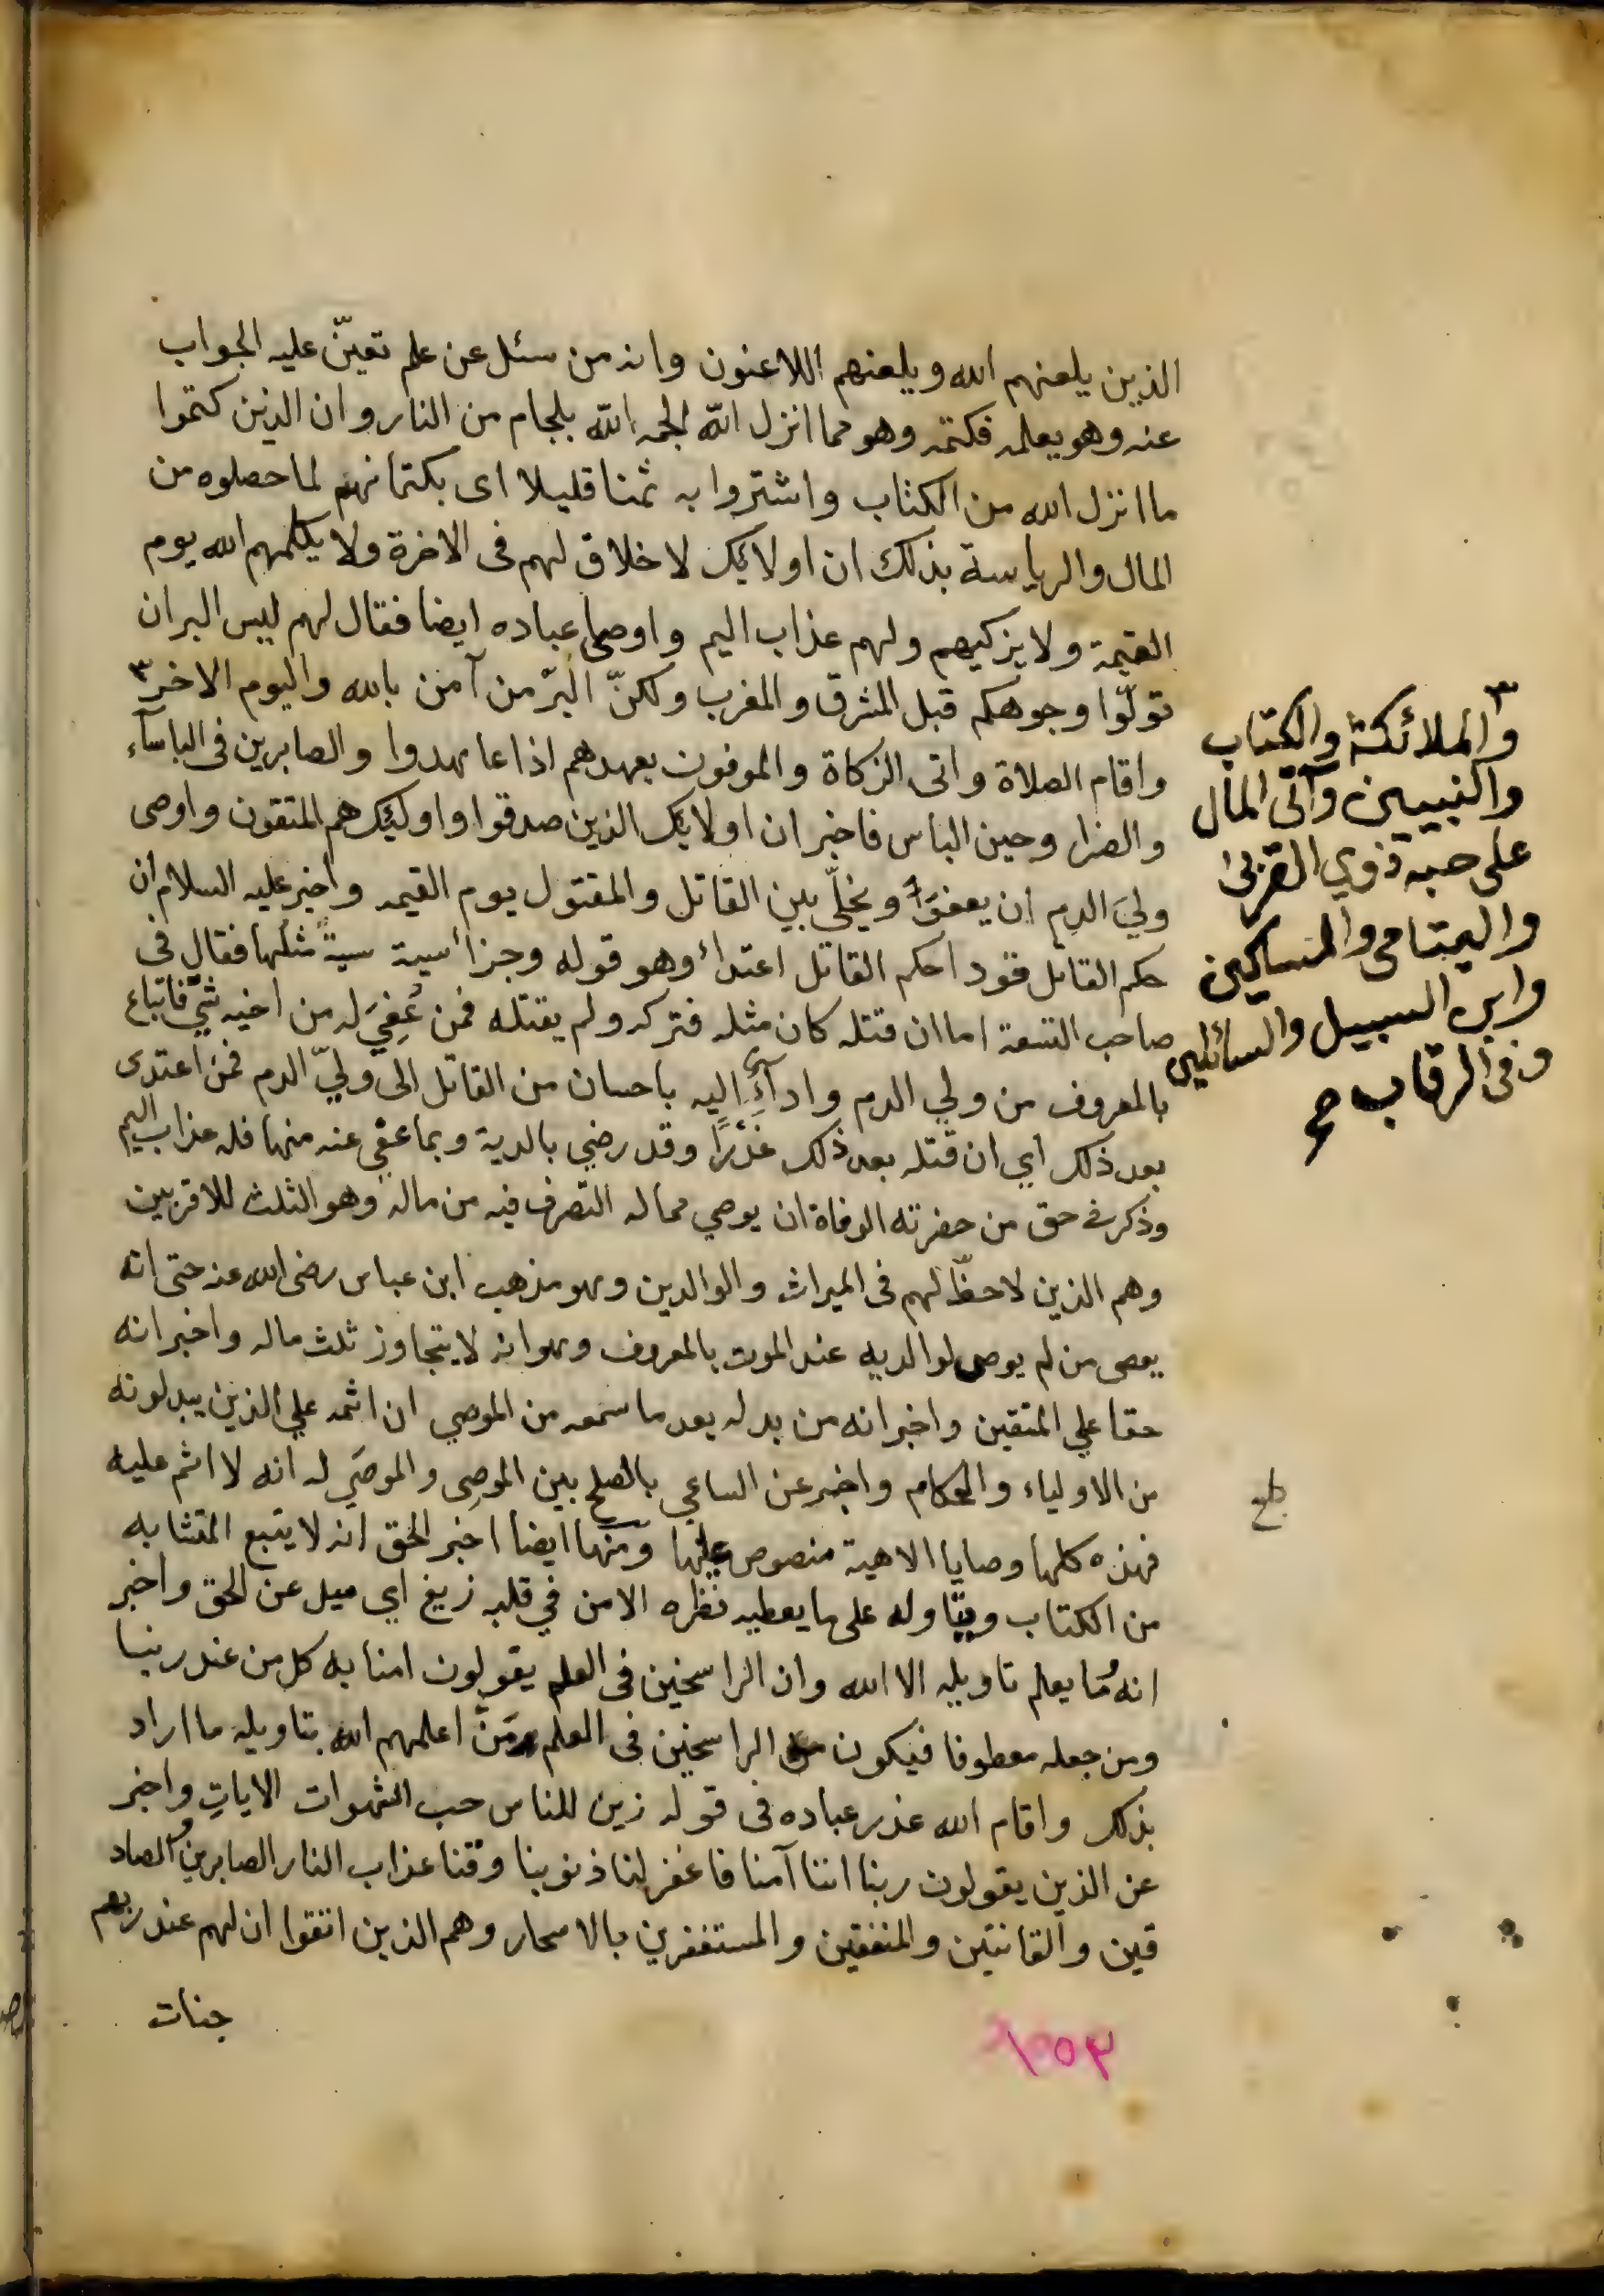 الذين يلعنهم الله ويلعنهم اللاعنون وانه من سئل عن علم تعيّن عليه الجواب
عنه وهو يعلمه فكتمه وهو مما انزل الله الجمه الله بلجام من النار وان الذين كتموا
ما انزل الله من الكتاب واشتروا به ثمنا قليلا اى بكتمانهم لما حصلوه من
المال والرياسة بذلك ان اولائك لا خلاق لهم فى الاخرة ولا يكلمهم الله يوم
القيمة ولا يزكيهم ولهم عذاب اليم واوصى عباده ايضا فقال لهم ليس البر ان
تولّوا وجوهكم قبل المشرق والمغرب ولكنّ البرّ من آمن بالله واليوم الاخر ٣
واقام الصلاة واتى الزكاة والموفون بعهدهم اذا عاهدوا والصابرين فى الباساء
والضرا وحين الباس فاخبر ان اولائك الذين صدقوا واولئيك هم المتقون واوصى
وليَ الدم ان يعفوَا ويخلّى بين القاتل والمقتول يوم القيمه واخبر عليه السلام ان
حكم القاتل قودا حكم القاتل اعتداء وهو قوله وجزاء سيئة سيئةً مثلها فقال فى
صاحب التسعة اما ان قتله كان مثله فتركه ولم يقتله فمن عُفِيَ له من اخيه شيٌ فاتباع
بالمعروف من ولي الدم واداءِ اليه باحسان من القاتل الى وليّ الدم فمن اعتدى
بعد ذلك اي ان قتله بعد ذلك غَدْرًا وقد رضي بالدية وبما عفي عنه منها فله عذاب اليم
وذكر فى حق من حضرته الوفاة ان يوصي مما له التصرف فيه من ماله وهو الثلث للاقربين
وهم الذين لا حظّ لهم فى الميراث والوالدين وهو مذهب ابن عباس رضى الله عنه حتى انه
يعصى من لم يوص لوالديه عند الموت بالمعروف وهو انه لا يتجاوز ثلث ماله واخبر انه
حقا علي المتقين واخبر انه من بدله بعد ما سمعه من الموصي ان اثمه علي الذين يبدلونه
من الاولياء والحكام واخبر عن الساعي بالصلح بين الموصِى والموصَي له انه لا اثم عليه
فهذه كلها وصايا الاهية منصوص عليها ومنها ايضا اخبر الحق انه لا يتبع المتشابه
من الكتاب ويتاوله على ما يعطيه نظره الا من في قلبه زيغ اي ميل عن الحق واخبر
انه ما يعلم تاويله الا الله وان الراسخين فى العلم يقولون امنا به كل من عند ربنا
ومن جعله معطوفا فيكون الراسخين فى العلم من اعلمهم الله بتاويله ما اراد
بذلك واقام الله عذر عباده فى قوله زين للناس حب الشهوات الاياتِ واخبر
عن الذين يقولون ربنا اننا آمنا فاغفر لنا ذنوبنا وقنا عذاب النار الصابرين والصاد
قين والقانتين والمنفقين والمستغفرين بالاسحار وهم الذين اتقوا ان لهم عند ربهم
جنات
١٥٣
٣
والملائكة والكتاب
والنبيين وآتى المال
على حبه ذوي القربى
واليتامى والمساكين
وابن السبيل والسائلين
وفى الرقاب صح
بلغ